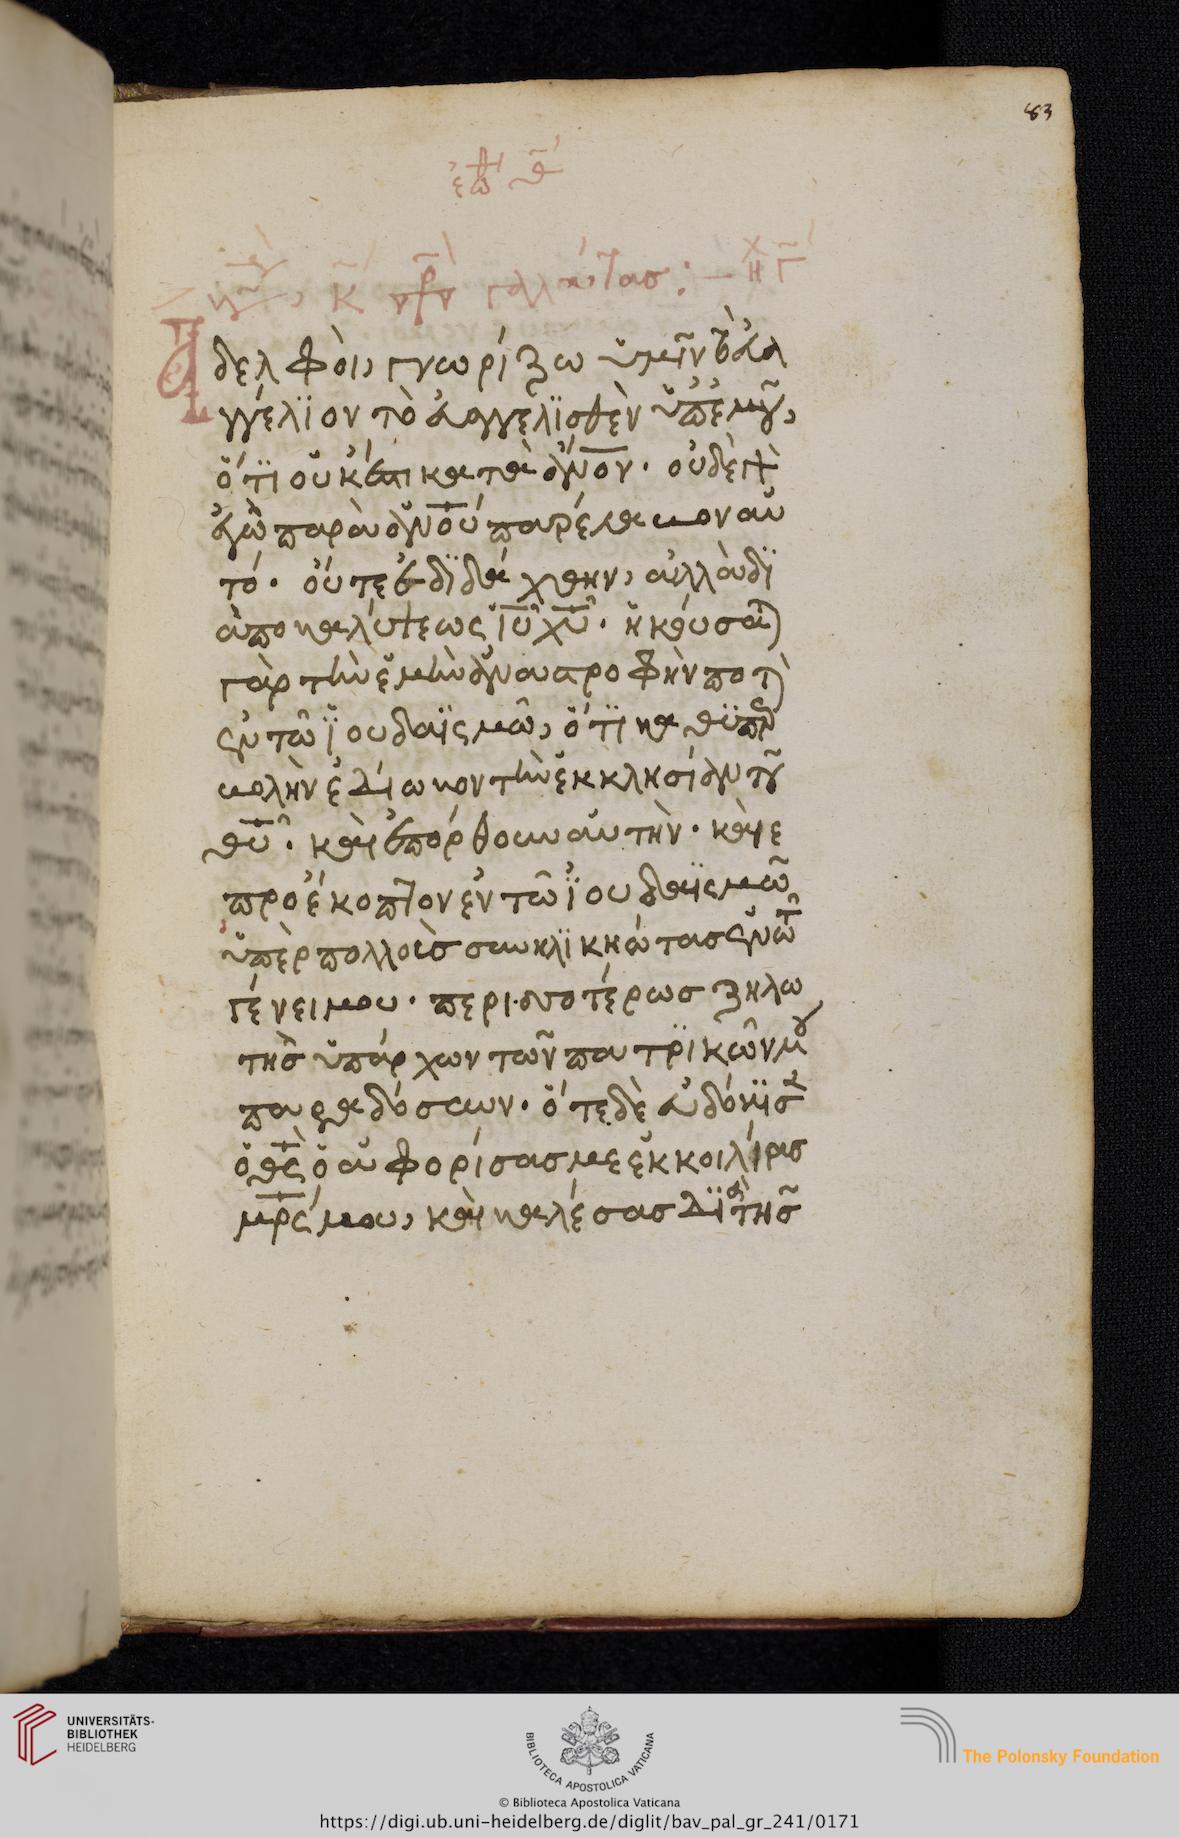 83
ἐωθ θ̃
κ̃ πρ γαλλάτας : — ἦχ Γ̃
Ἀδελφοὶ, γνωρίζω ὑμῖν τὸ ἐυα
γγέλϊον τὸ ἐυαγγελϊσθὲν ὑπ' ἐμοῦ,
ὅτϊ οὐκ ἔστι κατὰ ἄν̅ο̅ν̅. οὐδὲ γὰρ
ἐγὼ παρὰ ἀν̅ο̅υ̅ παρέλαβον αὐ
τό. οὔτε ἐδϊδάχθην, ἀλλὰ δϊ
ἀποκαλύψεως ι̅υ̅ χ̅υ̅. ἠκούσατε
γὰρ τὴν ἐμὴν ἀναστροφήν ποτὲ
ἐν τῶ ἰουδαϊσμῶ, ὅτϊ καθ' ὑπερ
βολὴν ἐδίωκον τὴν ἐκκλησίαν τοῦ
θ̅υ̅. καὶ ἐπόρθουν αὐτὴν. καὶ ε
προέκοπτον ἐν τῶ ἰουδαϊσμῶ
ὑπὲρ πολλοὺς συνηλϊκηώτας ἐν τῶ
γένει μου. περισσοτέρως ζηλω
τὴς ὑπάρχων τῶν πατρϊκῶν μου
παραδόσεων. ὅτε δὲ εὐδόκϊσεν
ὁ θ̅ς̅ ὁ ἀφορίσας με ἐκ κοιλίας
μ̅ρ̅ς̅ μου, καὶ καλέσας δϊὰ τῆς
UNIVERSITÄTS-
BIBLIOTHEK
HEIDELBERG
BIBLIOTECA APOSTOLICA VATICANA
© Biblioteca Apostolica Vaticana
The Polonsky Foundation
https://digi.ub.uni-heidelberg.de/diglit/bav_pal_gr_241/0171